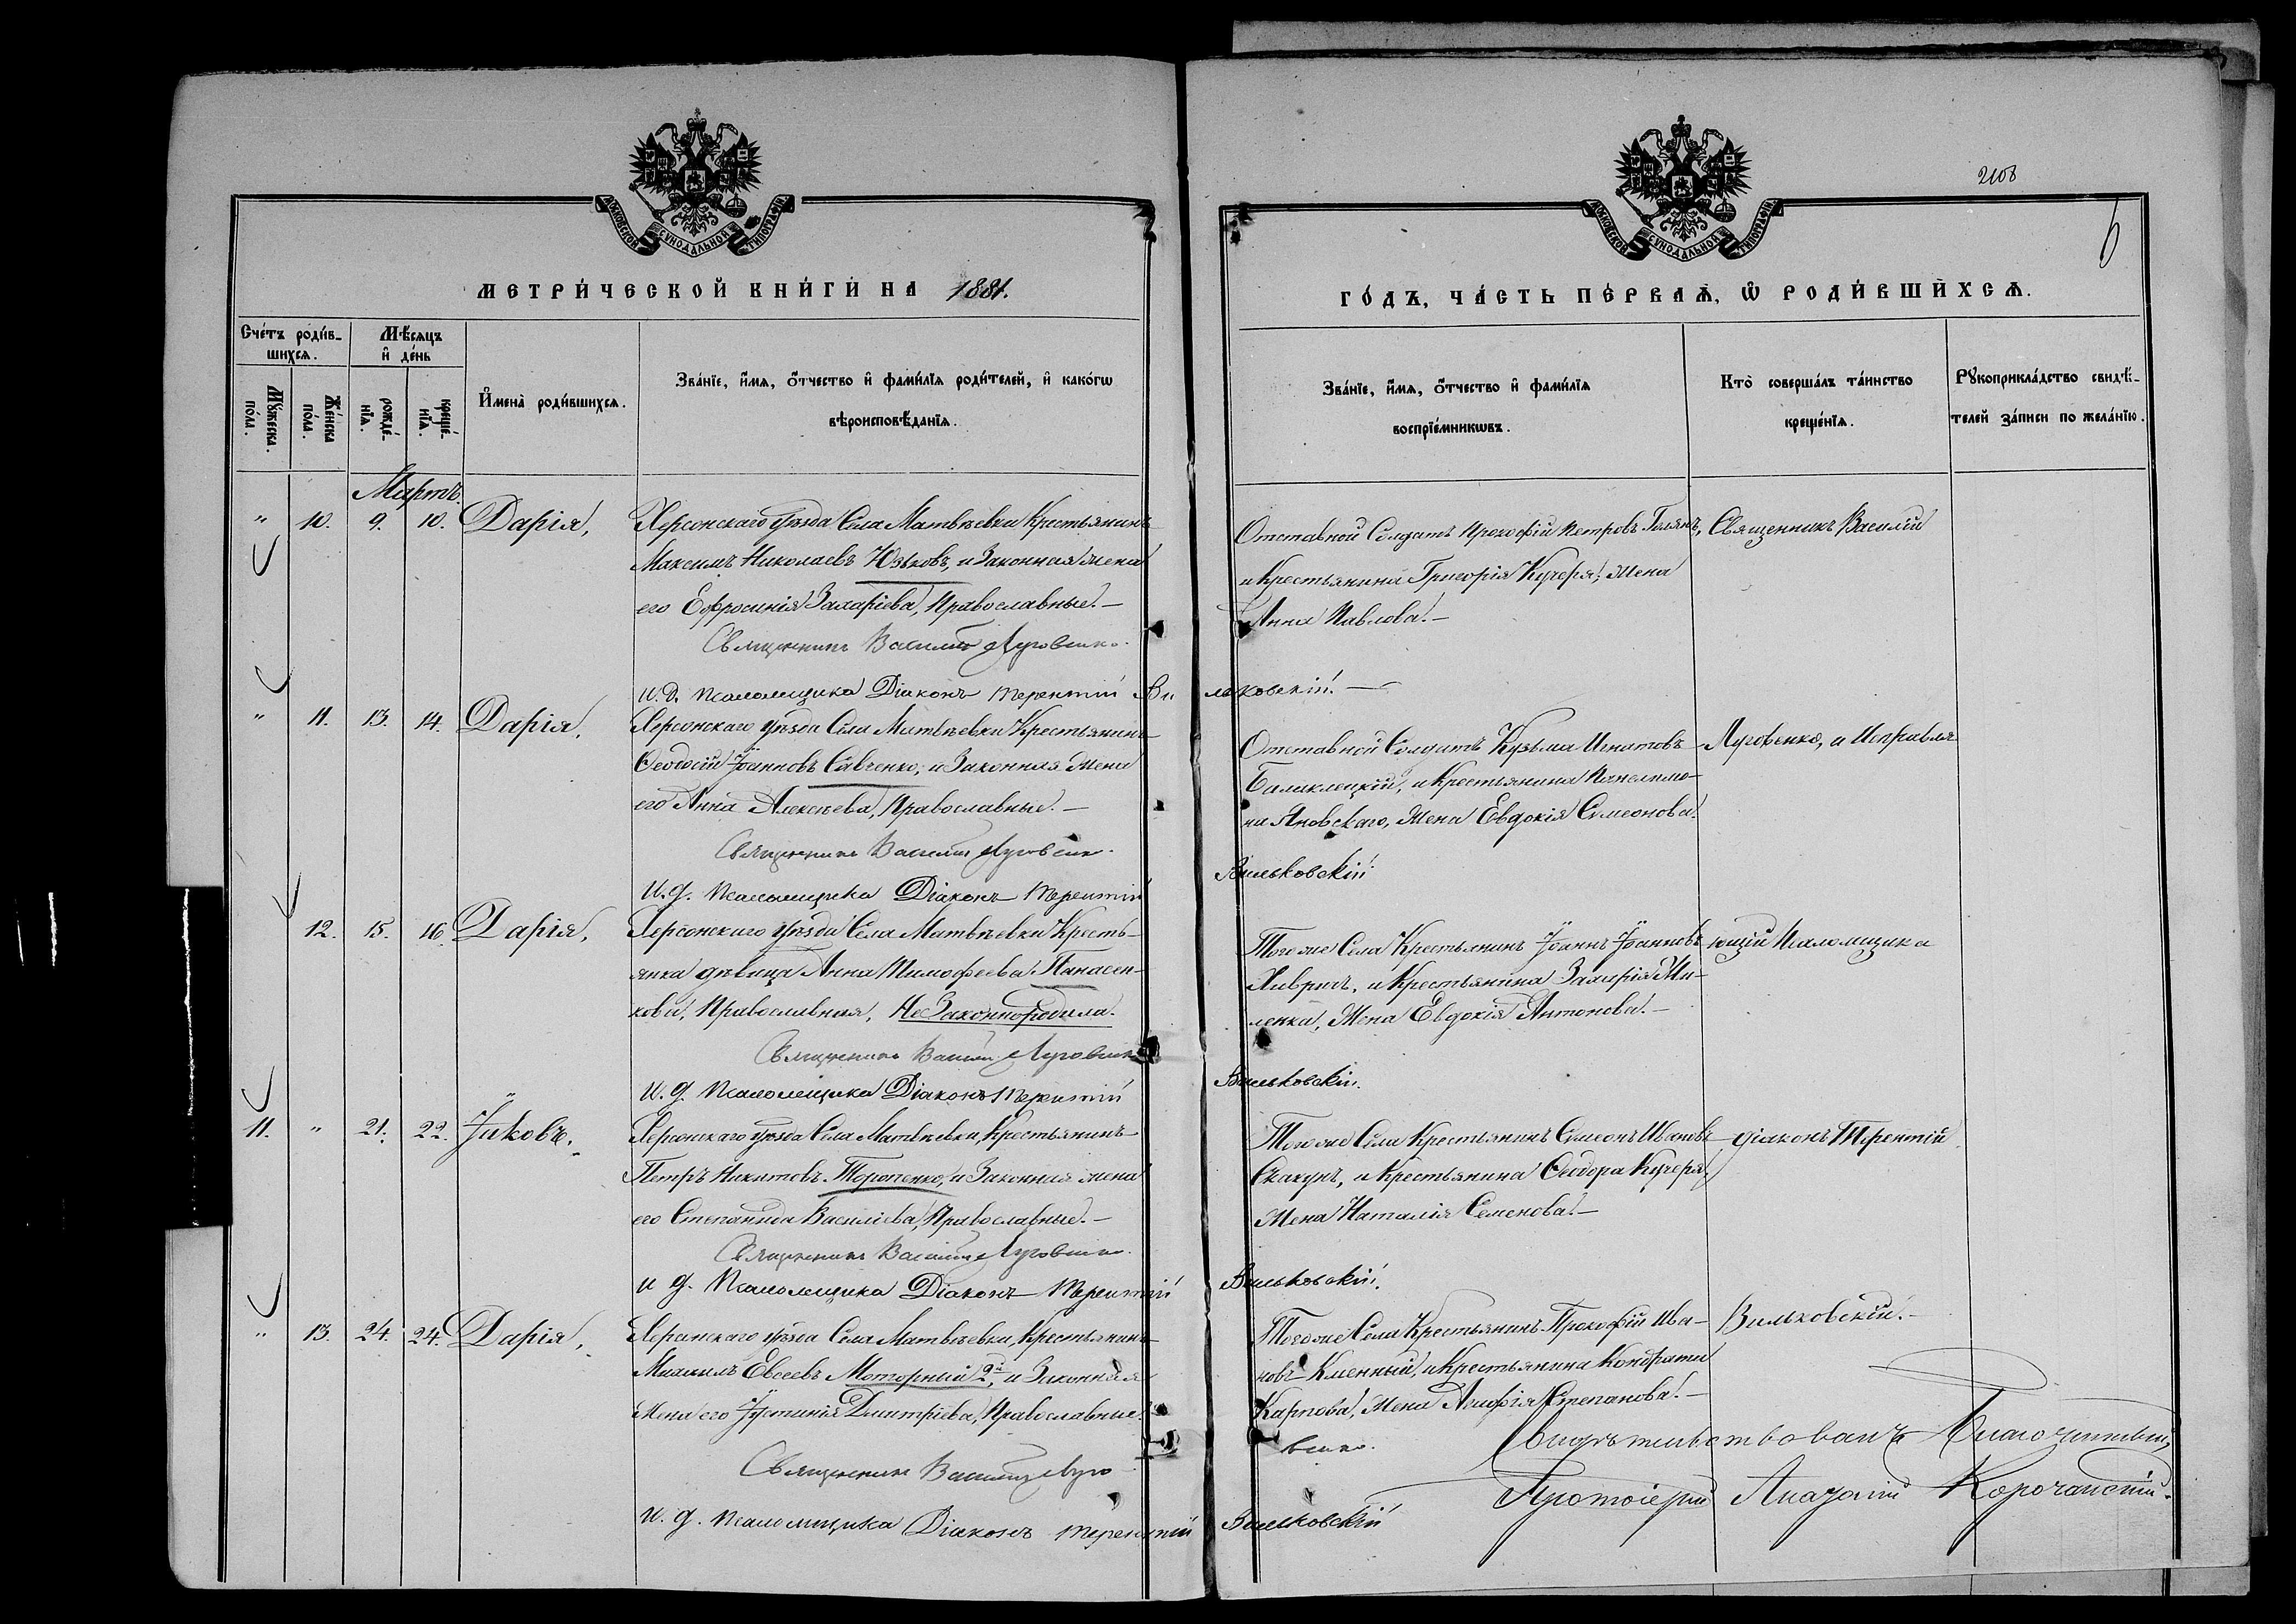 МОСКОВСКОЙ СѴНОДАЛЬНОЙ ТИПОГРАФІИ
МЕТРИ́ЧЕСКОЙ КНИ́ГИ НА 1881.
Сче́тъ роди́в-
шихсѧ.
Мѣ́сяцъ
и҆ де́нь
Мꙋ́жеска
по́ла.
Же́нска
по́ла.
рожде́-
нїѧ.
креще́-
нїѧ.
И҆мена̀ роди́вшихсѧ.
Зва́нїе, и҆́мѧ, ѻ҆́тчество и҆ фами́лїѧ роди́телей, и҆ како́гѡ
вѣроисповѣ́данїѧ.
Мартъ.
" 10. 9. 10. Дарія,
Херсонскаго уѣзда Села Матвѣевки Крестьянинъ
Максимъ Николаевъ Юзьковъ, и Законная жена
его Ефросинія Захаріева, Православные. —
Священникъ Василій Луговенко.
И. д. Псаломщика Діаконъ Терентій Ви
" 11. 13. 14. Дарія,
Херсонскаго уѣзда Села Матвѣевки Крестьянинъ
Ѳеодосій Іоанновъ Савченко, и Законная жена
его Анна Алексѣева, Православные. —
Священникъ Василій Луговенко.
И. д. Псаломщика Діаконъ Терентій
12. 15. 16. Дарія,
Херсонскаго уѣзда Села Матвѣевки Кресть-
янка дѣвица Анна Тимофеева Панасен-
кова, Православная, НеЗаконнородила.
Священникъ Василій Луговенко
И. д. Псаломщика Діаконъ Терентій
11. " 21. 22. Іаковъ,
Херсонскаго уѣзда Села Матвѣевки, Крестьянинъ
Петръ Никитовъ Торопенко, и Законная жена
его Степанида Василіева, Православные. —
Священникъ Василій Луговенко.
И д. Псаломщика Діаконъ Терентій
" 13. 24. 24. Дарія,
Херсонскаго уѣзда Села Матвѣевки, Крестьянинъ
Михаилъ Евсеевъ Моторный 2й, и Законная
Жена его Іустинія Дмитріева, Православные.
Священникъ Василій Луго
И. д. Псаломщика Діаконъ Терентій
2108
6
МОСКОВСКОЙ СѴНОДАЛЬНОЙ ТИПОГРАФІИ
ГО́ДЪ, ЧА́СТЬ ПЕ́РВАѦ, Ѡ҆ РОДИ́ВШИХСѦ.
Зва́нїе, и҆́мѧ, ѻ҆́тчество и҆ фами́лїѧ
воспрїе́мникѡвъ.
Кто̀ соверша́лъ та́инство
креще́нїѧ.
Рꙋкоприкла́дство свидѣ́-
телей за́писи по жела́нїю.
Отставной Солдатъ Прокофій Петровъ Голянъ,
и Крестьянина Григорія Кучеря, Жена
Анна Павлова. —
Священникъ Василій
льковскій. —
Отставной Солдатъ Кузьма Игнатовъ
Балаклецкій, и Крестьянина Пантелимо-
на Яновскаго, Жена Евдокія Симеонова.
Луговенко, и Исправля-
Вильковскій.
Тогоже Села Крестьянинъ Іоаннъ Іоанновъ
Хавричъ, и Крестьянина Захарія Ми-
ленка, Жена Евдокія Антонова. —
ющій Псаломщика
Вильковскій.
Тогоже Села Крестьянинъ Симеонъ Ивановъ
Скакунъ, и Крестьянина Ѳеодора Кучеря,
Жена Наталія Семенова. —
діаконъ Терентій
Вильковскій.
Тогоже Села Крестьянинъ Прокофій Ива-
новъ Клейный, и Крестьянина Кондрата
Карпова, Жена Агафія Степанова. —
Вильковскій. —
венко.
Вильковскій
Свидѣтельствовалъ Благочинный,
Протоіерей Анатолій Корочанскій.